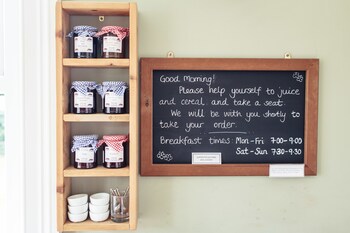 Good Morning!
Please help yourself to juice
and cereal and take a seat.
We will be with you shortly to
take your order
Breakfast times: Mon-Fri 7:00-9:00
Sat-Sun 7:30-9:30